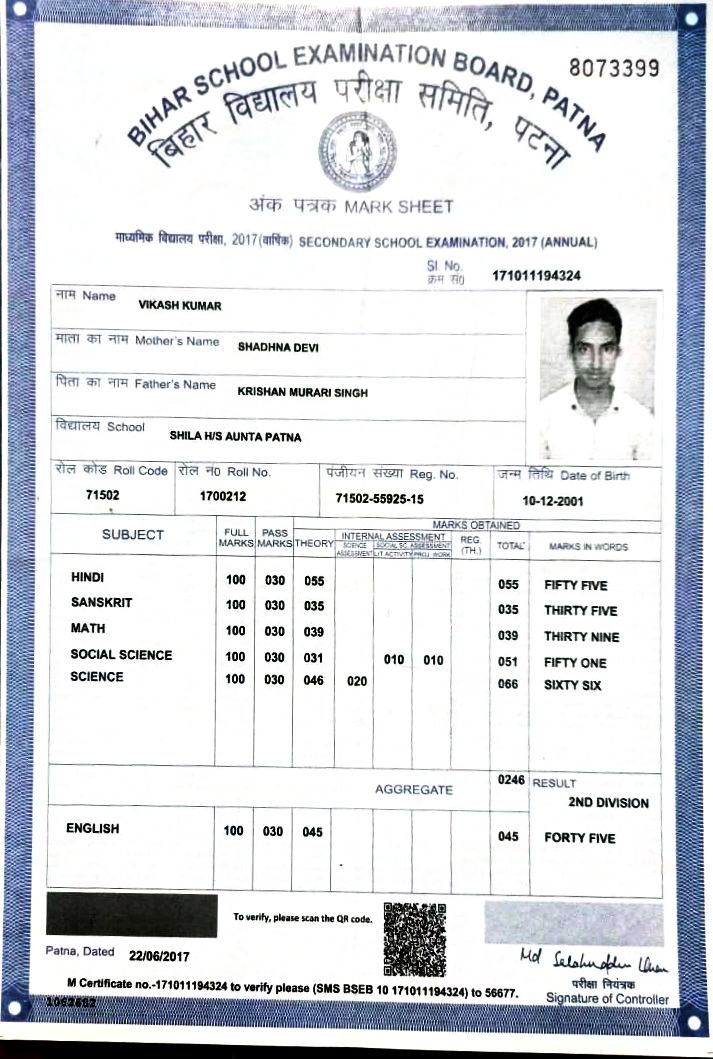 8073399
BIHAR SCHOOL EXAMINATION BOARD, PATNA
बिहार विद्यालय परीक्षा समिति, पटना
अंक पत्रक MARK SHEET
माध्यमिक विद्यालय परीक्षा, 2017(वार्षिक) SECONDARY SCHOOL EXAMINATION, 2017 (ANNUAL)
Sl No. 171011194324
क्रम सं0
नाम Name VIKASH KUMAR
माता का नाम Mother's Name SHADHNA DEVI
पिता का नाम Father's Name KRISHAN MURARI SINGH
विद्यालय School SHILA H/S AUNTA PATNA
रोल कोड Roll Code रोल न0 Roll No. पंजीयन संख्या Reg. No. जन्म तिथि Date of Birth
71502 1700212 71502-55925-15 10-12-2001
MARKS OBTAINED
SUBJECT FULL MARKS PASS MARKS THEORY INTERNAL ASSESSMENT REG. (TH.) TOTAL MARKS IN WORDS
SCIENCE ASSESSMENT SOCIAL SC. ASSESSMENT
LIT ACTIVITY PROJ. WORK
HINDI 100 030 055 055 FIFTY FIVE
SANSKRIT 100 030 035 035 THIRTY FIVE
MATH 100 030 039 039 THIRTY NINE
SOCIAL SCIENCE 100 030 031 010 010 051 FIFTY ONE
SCIENCE 100 030 046 020 066 SIXTY SIX
AGGREGATE 0246 RESULT
2ND DIVISION
ENGLISH 100 030 045 045 FORTY FIVE
To verify, please scan the QR code.
Patna, Dated 22/06/2017
Md
परीक्षा नियंत्रक
M Certificate no.-171011194324 to verify please (SMS BSEB 10 171011194324) to 56677.
Signature of Controller